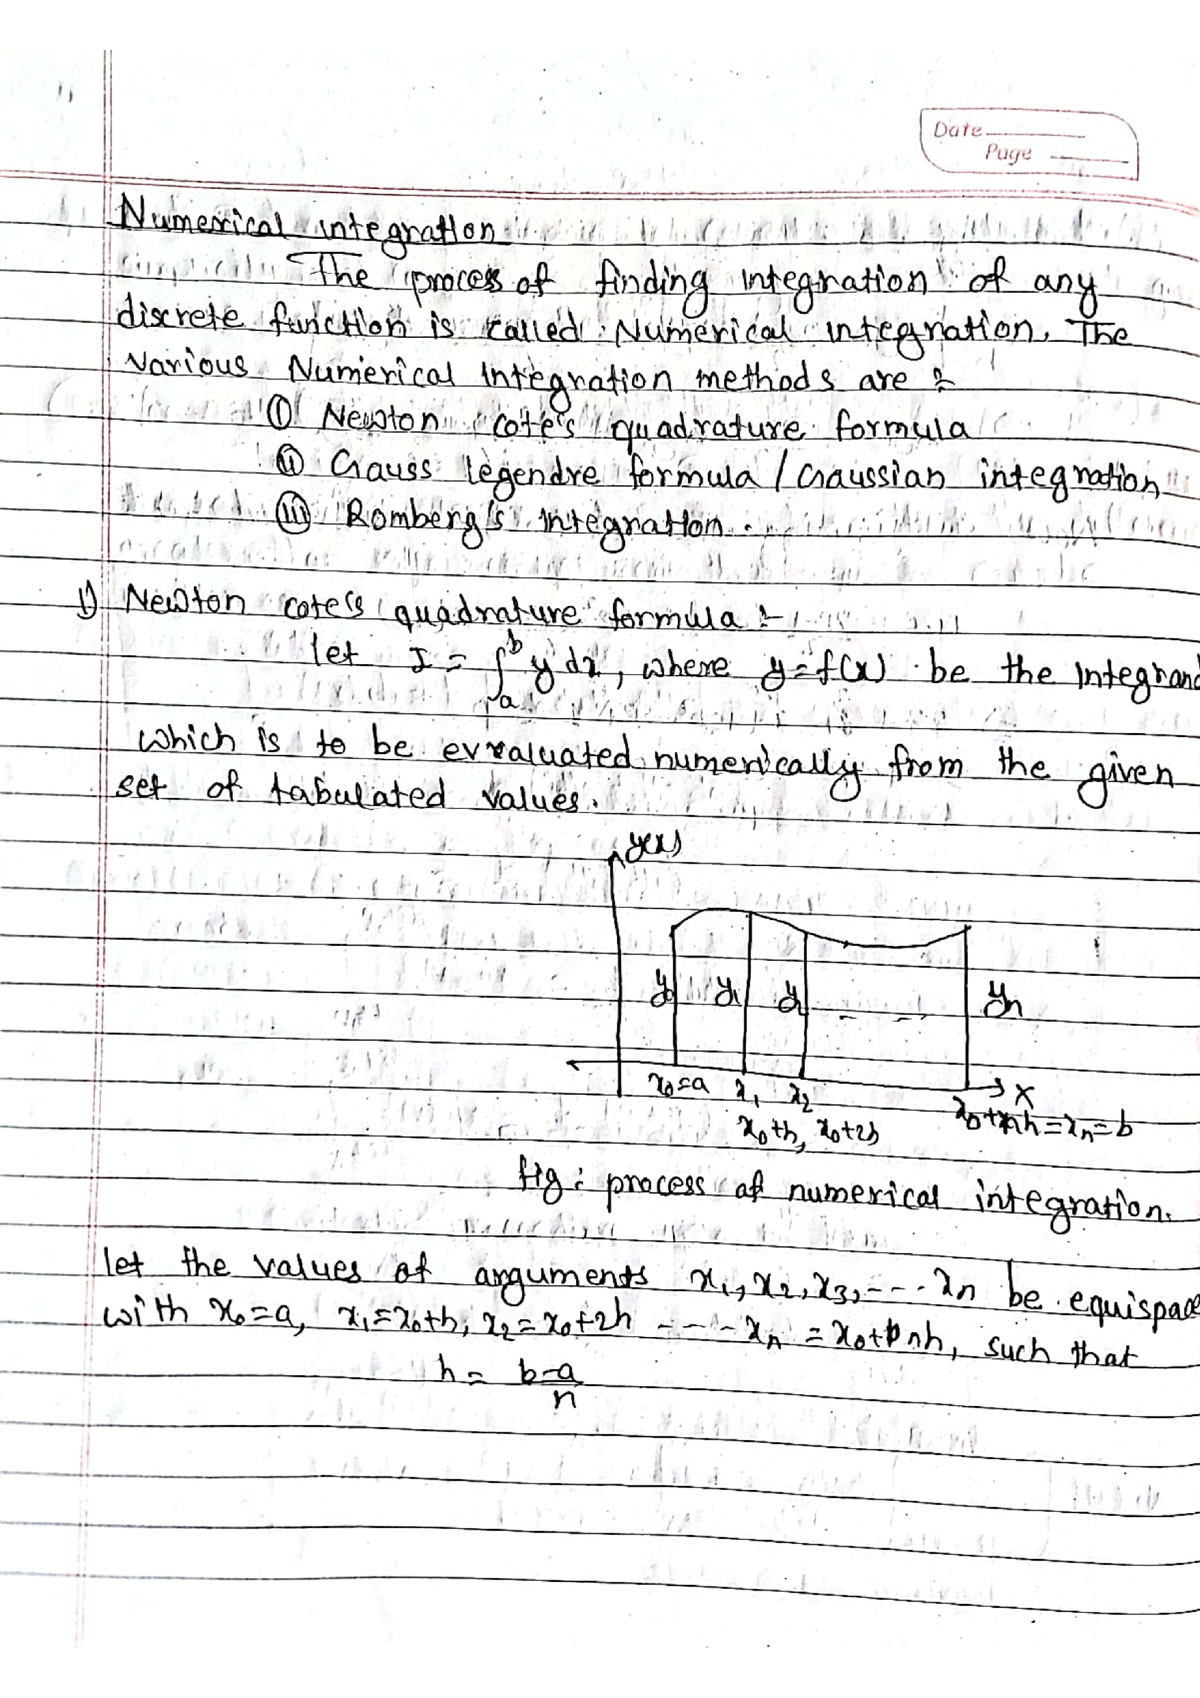 Date
Page
Numerical integration
The process of finding integration of any
discrete function is called Numerical integration. The
various Numerical integration methods are :-
(i) Newton cote's quadrature formula
(ii) Gauss legendre formula / Gaussian integration
(iii) Romberg's integration.
1) Newton cote's quadrature formula :-
let I = ∫_a^b y dx, where y=f(x) be the integrand
which is to be evraluated numerically from the given
set of tabulated values.
y(x)
y₀ y₁ y₂ - - - yₙ
x₀=a x₁ x₂ X
x₀+h, x₀+2h x₀+nh=xₙ=b
fig: process of numerical integration.
let the values of arguments x₁, x₂, x₃, --- xₙ be equispace
with x₀=a, x₁=x₀+h, x₂=x₀+2h --- xₙ = x₀+nh, such that
h = b-a/n